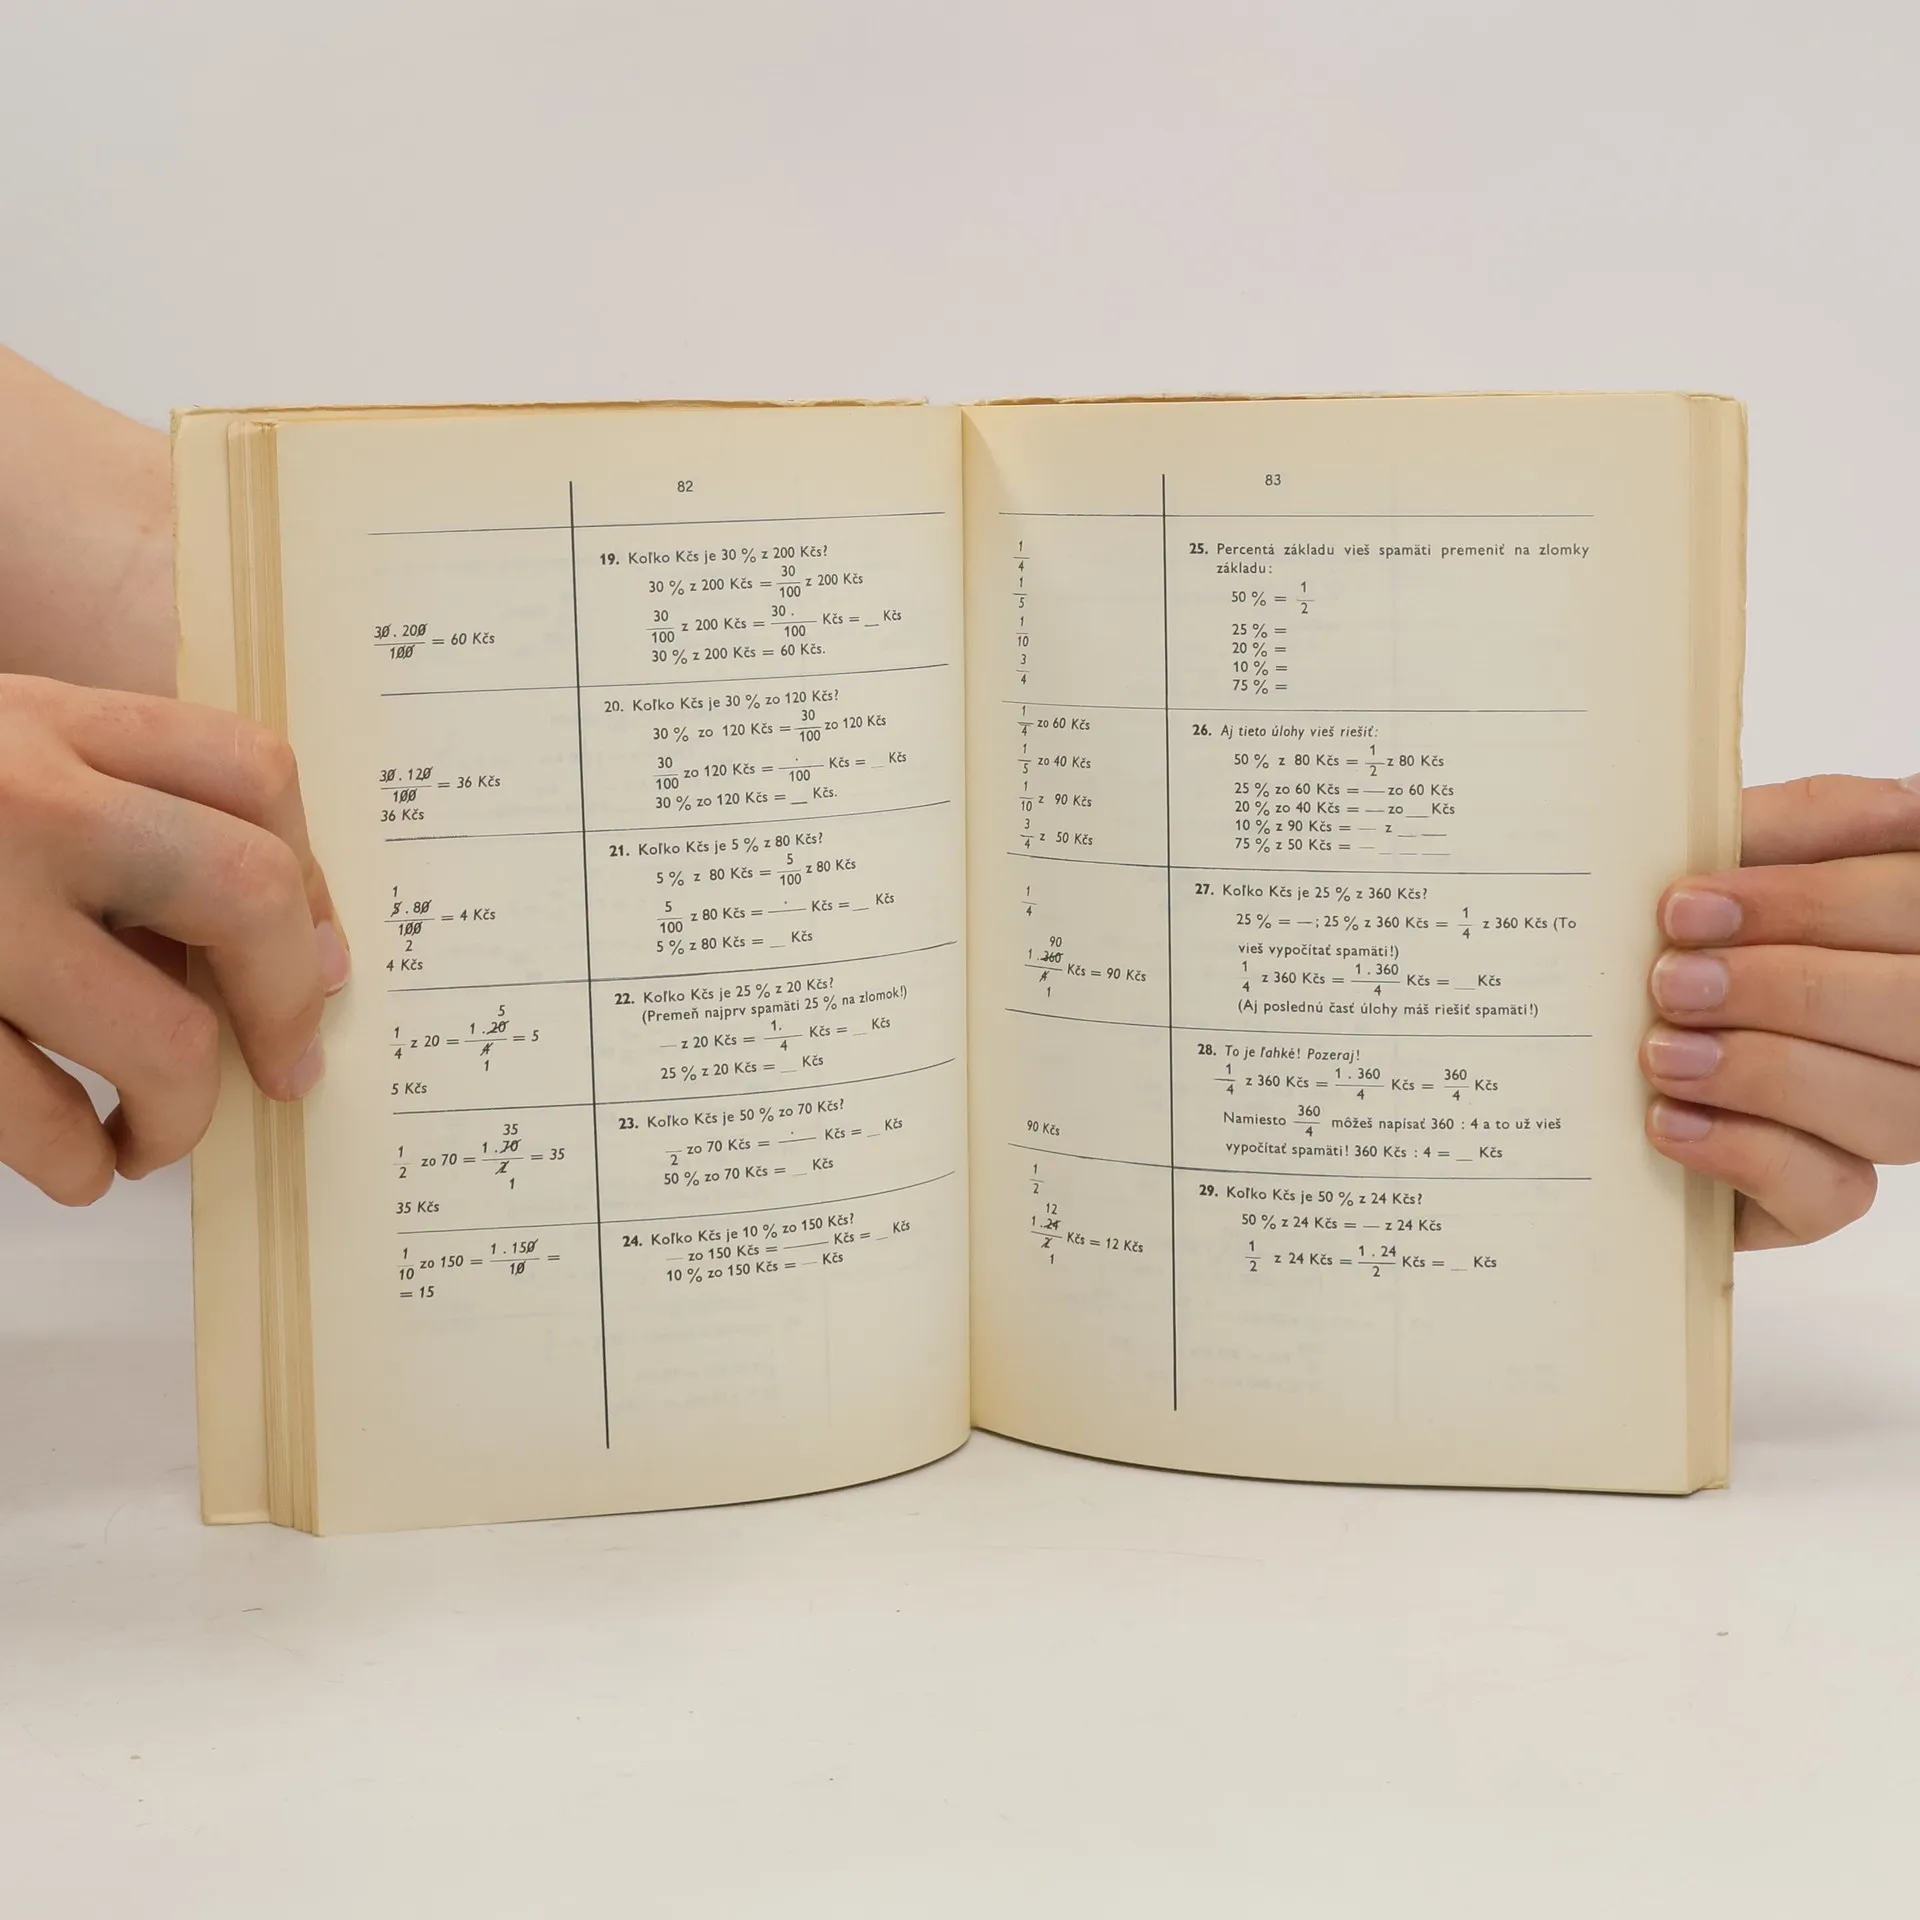 82
30 . 200
100 = 60 Kčs
19. Koľko Kčs je 30 % z 200 Kčs?
30 % z 200 Kčs = 30/100 z 200 Kčs
30/100 z 200 Kčs = 30 . /100 Kčs = _ Kčs
30 % z 200 Kčs = 60 Kčs.
30 . 120
100 = 36 Kčs
36 Kčs
20. Koľko Kčs je 30 % zo 120 Kčs?
30 % zo 120 Kčs = 30/100 zo 120 Kčs
30/100 zo 120 Kčs = . /100 Kčs = _ Kčs
30 % zo 120 Kčs = __ Kčs.
1
5 . 80
100 = 4 Kčs
2
4 Kčs
21. Koľko Kčs je 5 % z 80 Kčs?
5 % z 80 Kčs = 5/100 z 80 Kčs
5/100 z 80 Kčs = . / Kčs = _ Kčs
5 % z 80 Kčs = _ Kčs
5
1/4 z 20 = 1 . 20/4 = 5
1
5 Kčs
22. Koľko Kčs je 25 % z 20 Kčs?
(Premeň najprv spamäti 25 % na zlomok!)
— z 20 Kčs = 1. /4 Kčs = _ Kčs
25 % z 20 Kčs = _ Kčs
35
1/2 zo 70 = 1 . 70/2 = 35
1
35 Kčs
23. Koľko Kčs je 50 % zo 70 Kčs?
/2 zo 70 Kčs = . / Kčs = _ Kčs
50 % zo 70 Kčs = _ Kčs
1/10 zo 150 = 1 . 150/10 =
= 15
24. Koľko Kčs je 10 % zo 150 Kčs?
— zo 150 Kčs = —— Kčs = _ Kčs
10 % zo 150 Kčs = — Kčs
83
1/4
1/5
1/10
3/4
25. Percentá základu vieš spamäti premeniť na zlomky
základu:
50 % = 1/2
25 % =
20 % =
10 % =
75 % =
1/4 zo 60 Kčs
1/5 zo 40 Kčs
1/10 z 90 Kčs
3/4 z 50 Kčs
26. Aj tieto úlohy vieš riešiť:
50 % z 80 Kčs = 1/2 z 80 Kčs
25 % zo 60 Kčs = — zo 60 Kčs
20 % zo 40 Kčs = — zo __ Kčs
10 % z 90 Kčs = — z __ __
75 % z 50 Kčs = — _ __ __
1/4
90
1 . 360/4 Kčs = 90 Kčs
1
27. Koľko Kčs je 25 % z 360 Kčs?
25 % = —; 25 % z 360 Kčs = 1/4 z 360 Kčs (To
vieš vypočítať spamäti!)
1/4 z 360 Kčs = 1 . 360/4 Kčs = __ Kčs
(Aj poslednú časť úlohy máš riešiť spamäti!)
90 Kčs
28. To je ľahké! Pozeraj!
1/4 z 360 Kčs = 1 . 360/4 Kčs = 360/4 Kčs
Namiesto 360/4 môžeš napísať 360 : 4 a to už vieš
vypočítať spamäti! 360 Kčs : 4 = _ Kčs
1/2
12
1 . 24/2 Kčs = 12 Kčs
1
29. Koľko Kčs je 50 % z 24 Kčs?
50 % z 24 Kčs = — z 24 Kčs
1/2 z 24 Kčs = 1 . 24/2 Kčs = _ Kčs